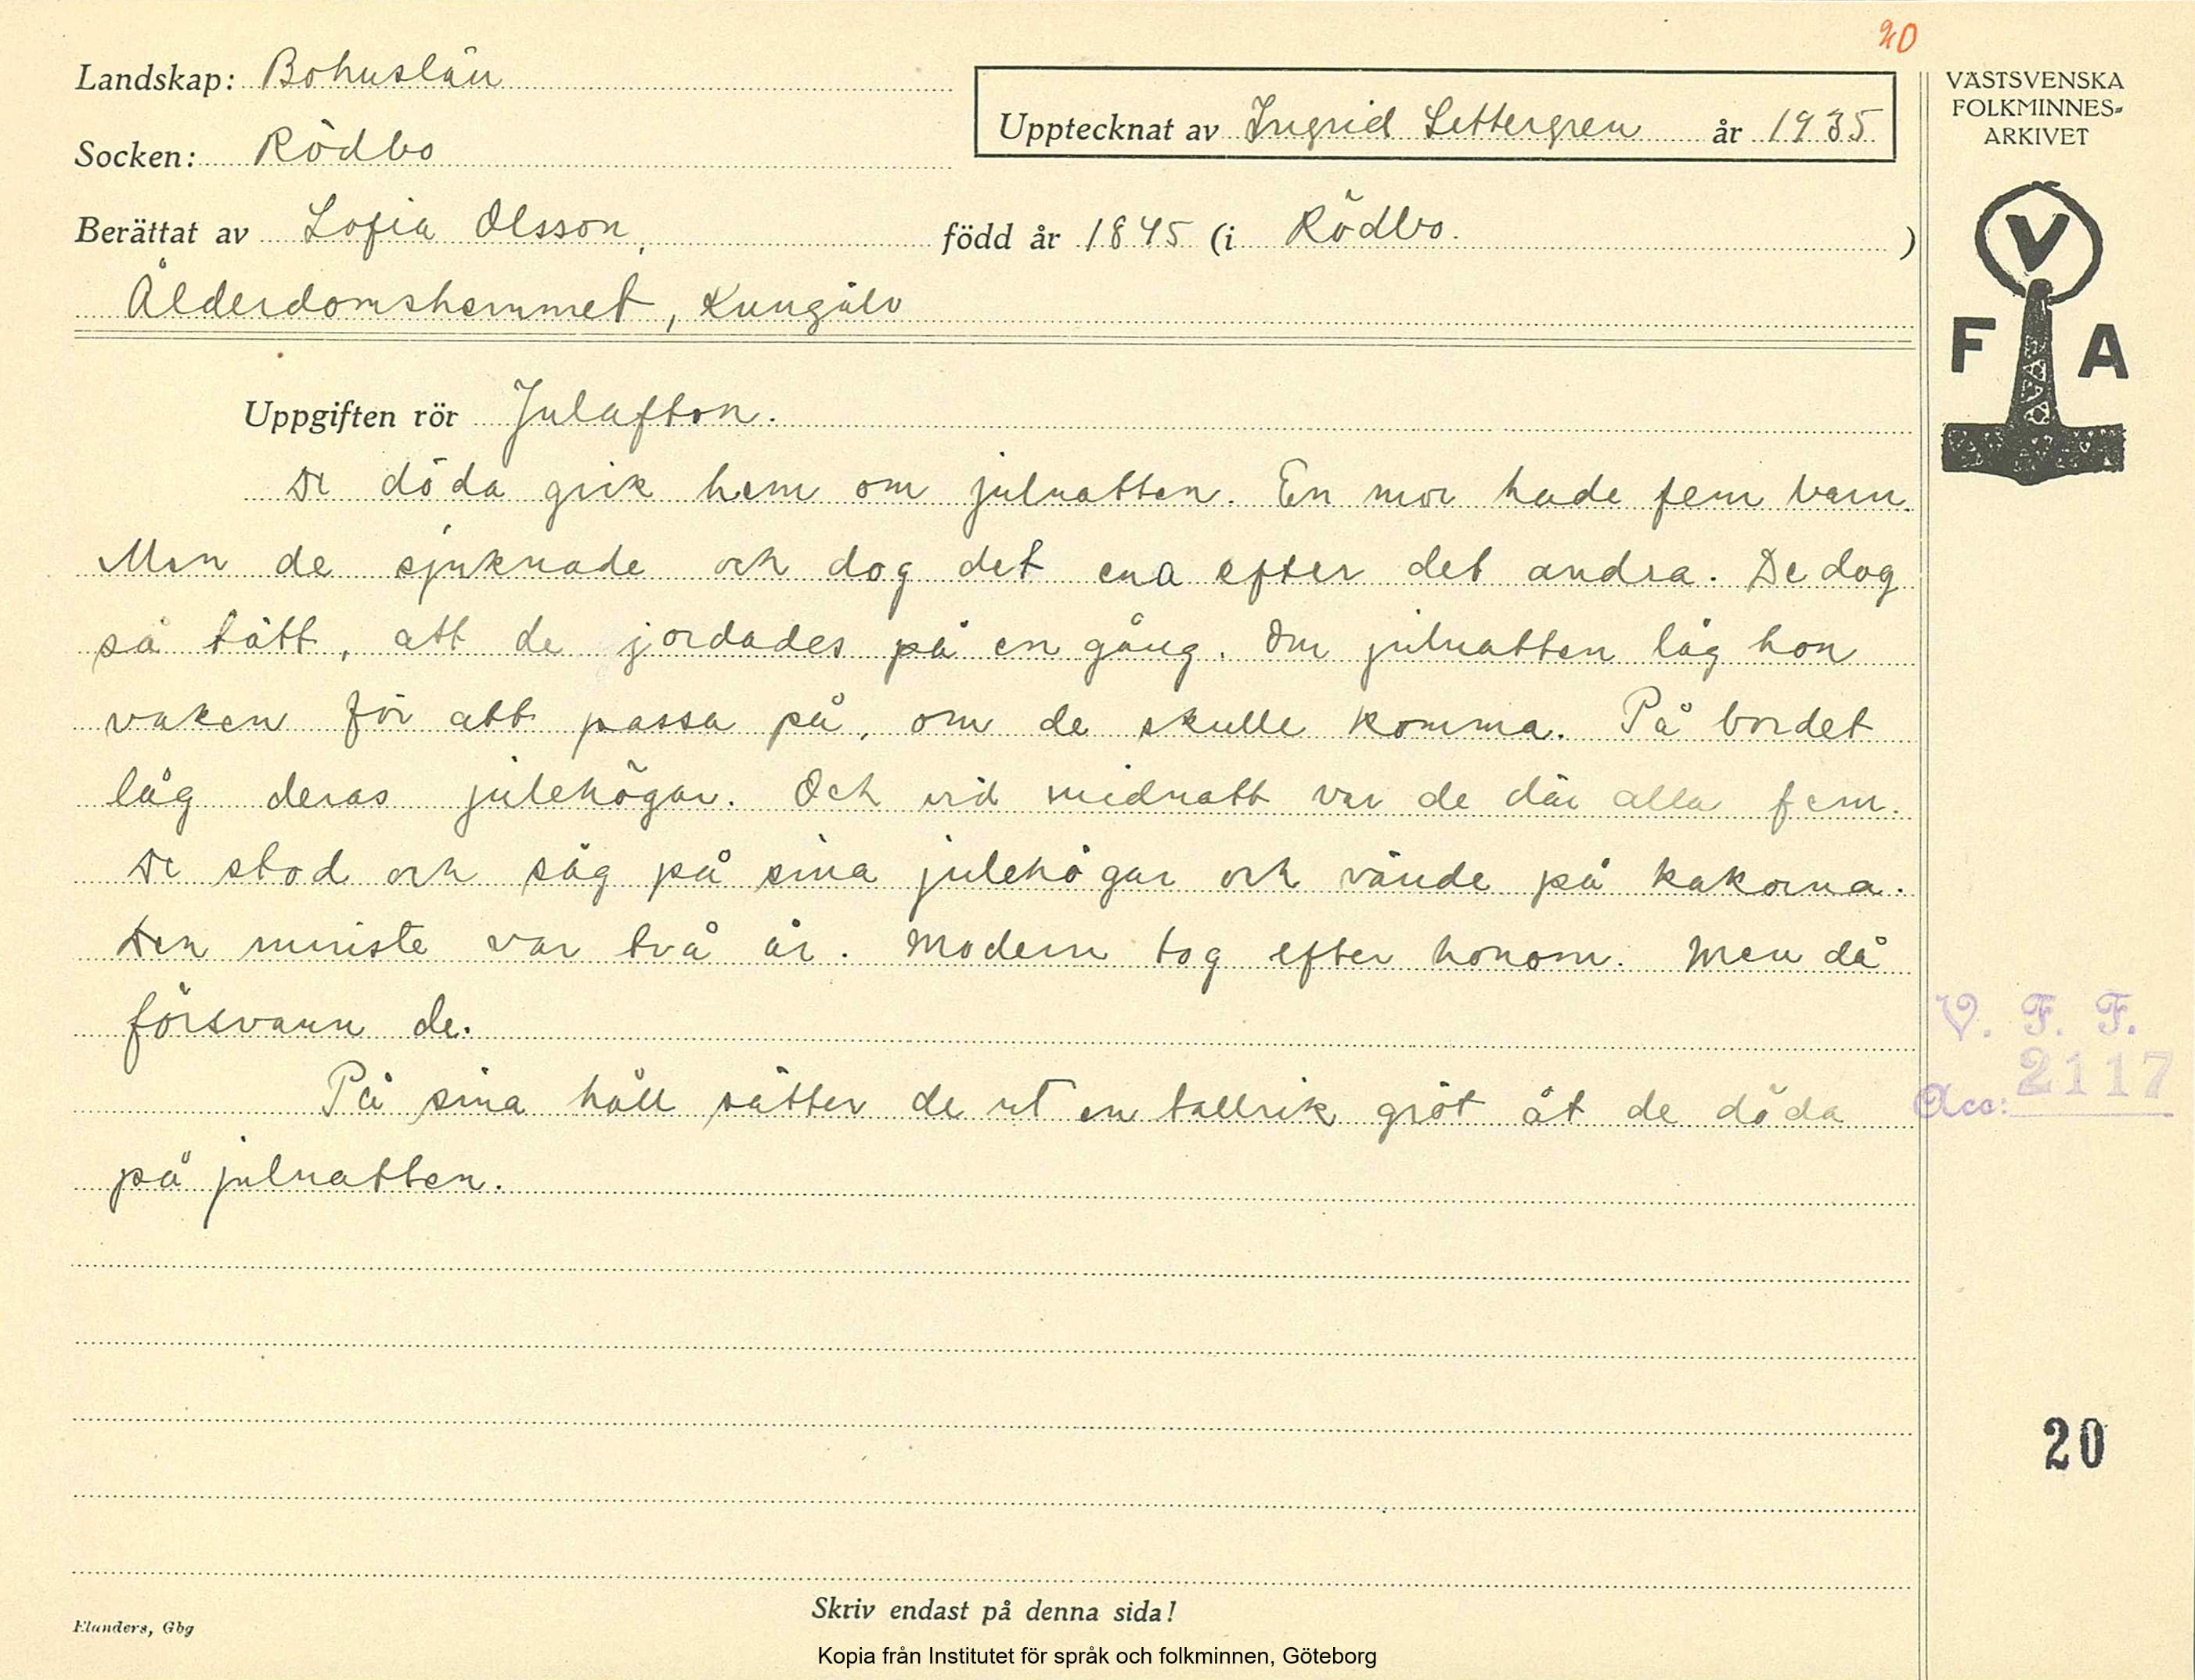 20
Landskap: Bohuslän
Socken: Rödbo
Upptecknat av Ingrid Settergren år 1935
VÄSTSVENSKA
FOLKMINNES-
ARKIVET
V
F A
Berättat av Sofia Olsson, född år 1845 (i Rödbo. )
Ålderdomshemmet, Kungälv
Uppgiften rör Julafton.
De döda gick hem om julnatten. En mor hade fem barn.
Men de sjuknade och dog det ena efter det andra. De dog
så tätt, att de jordades på en gång. Om julnatten låg hon
vaken för att passa på, om de skulle komma. På bordet
låg deras julehögar. Och vid midnatt var de där alla fem.
De stod och såg på sina julehögar och vände på kakorna.
Den minste var två år. Modern tog efter honom. Men då
försvann de.
På sina håll sätter de ut en tallrik gröt åt de döda
på julnatten.
V. F. F.
Acc: 2117
20
Skriv endast på denna sida!
Elanders, Gbg
Kopia från Institutet för språk och folkminnen, Göteborg